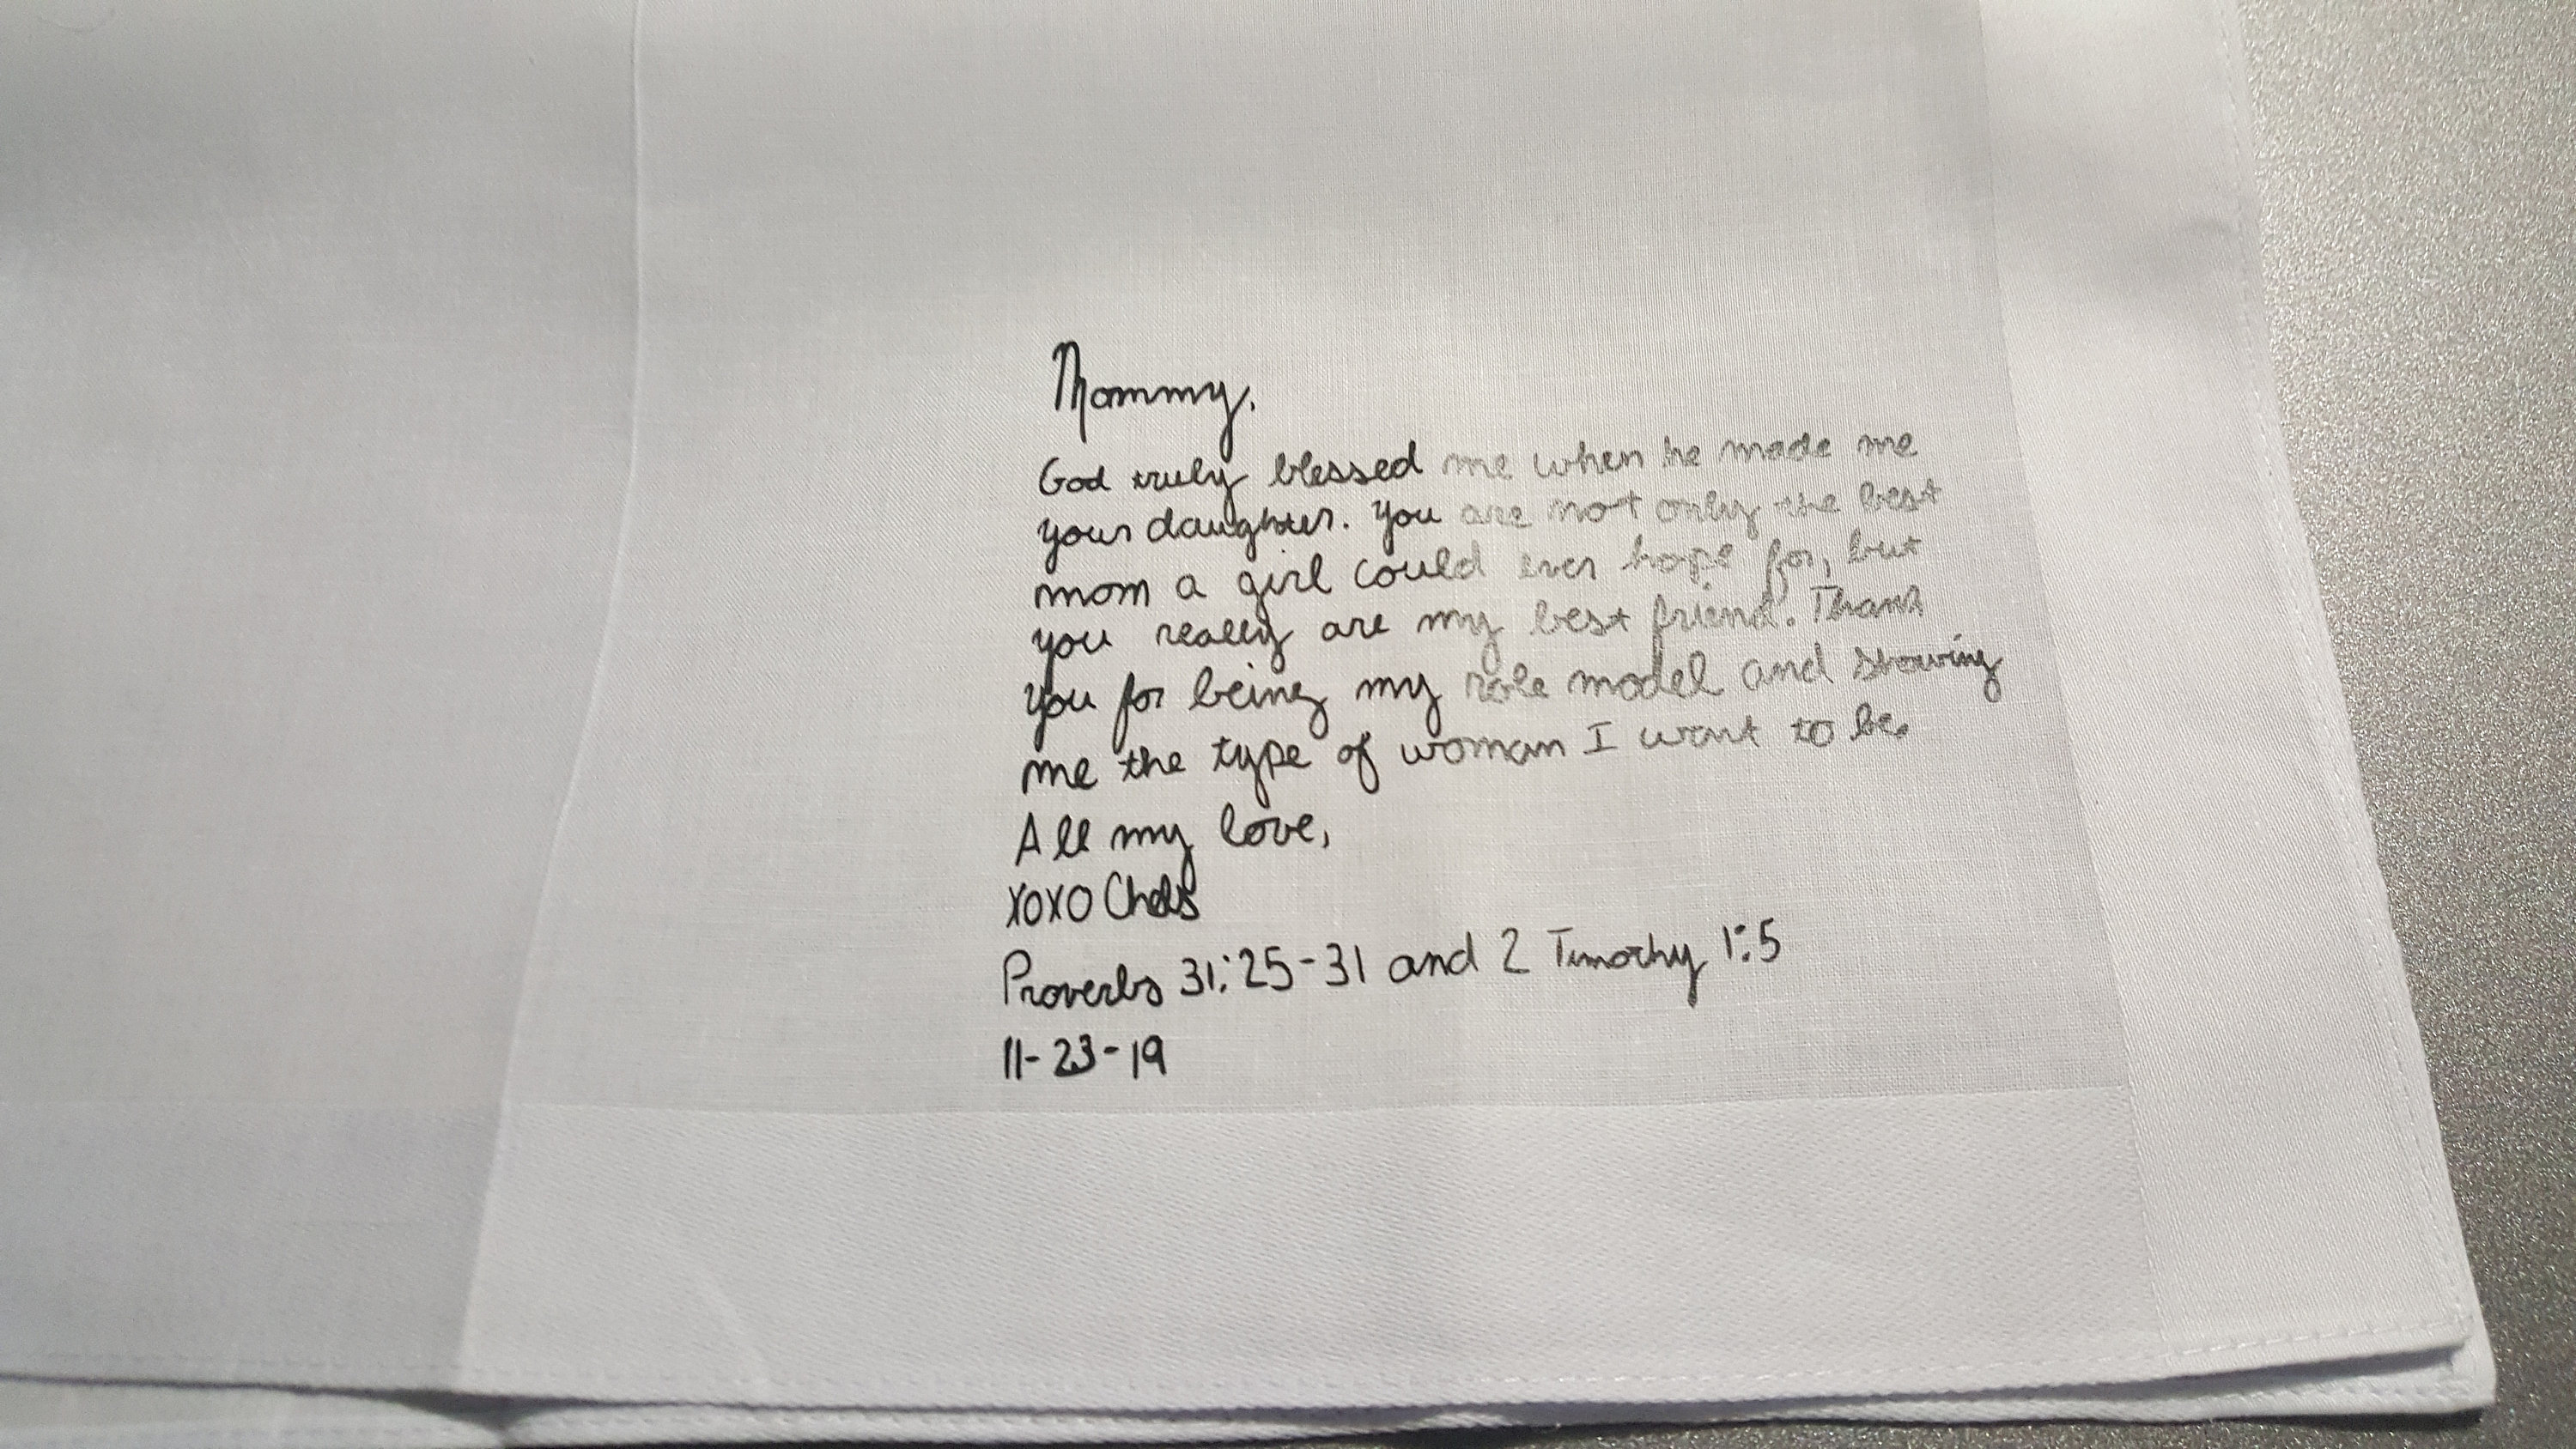 Mommy,
God truly blessed me when he made me
your daughter. You are not only the best
mom a girl could ever hope for, but
you really are my best friend. Thank
you for being my role model and showing
me the type of woman I want to be.
All my love,
XOXO Chels
Proverbs 31:25-31 and 2 Timothy 1:5
11-23-19